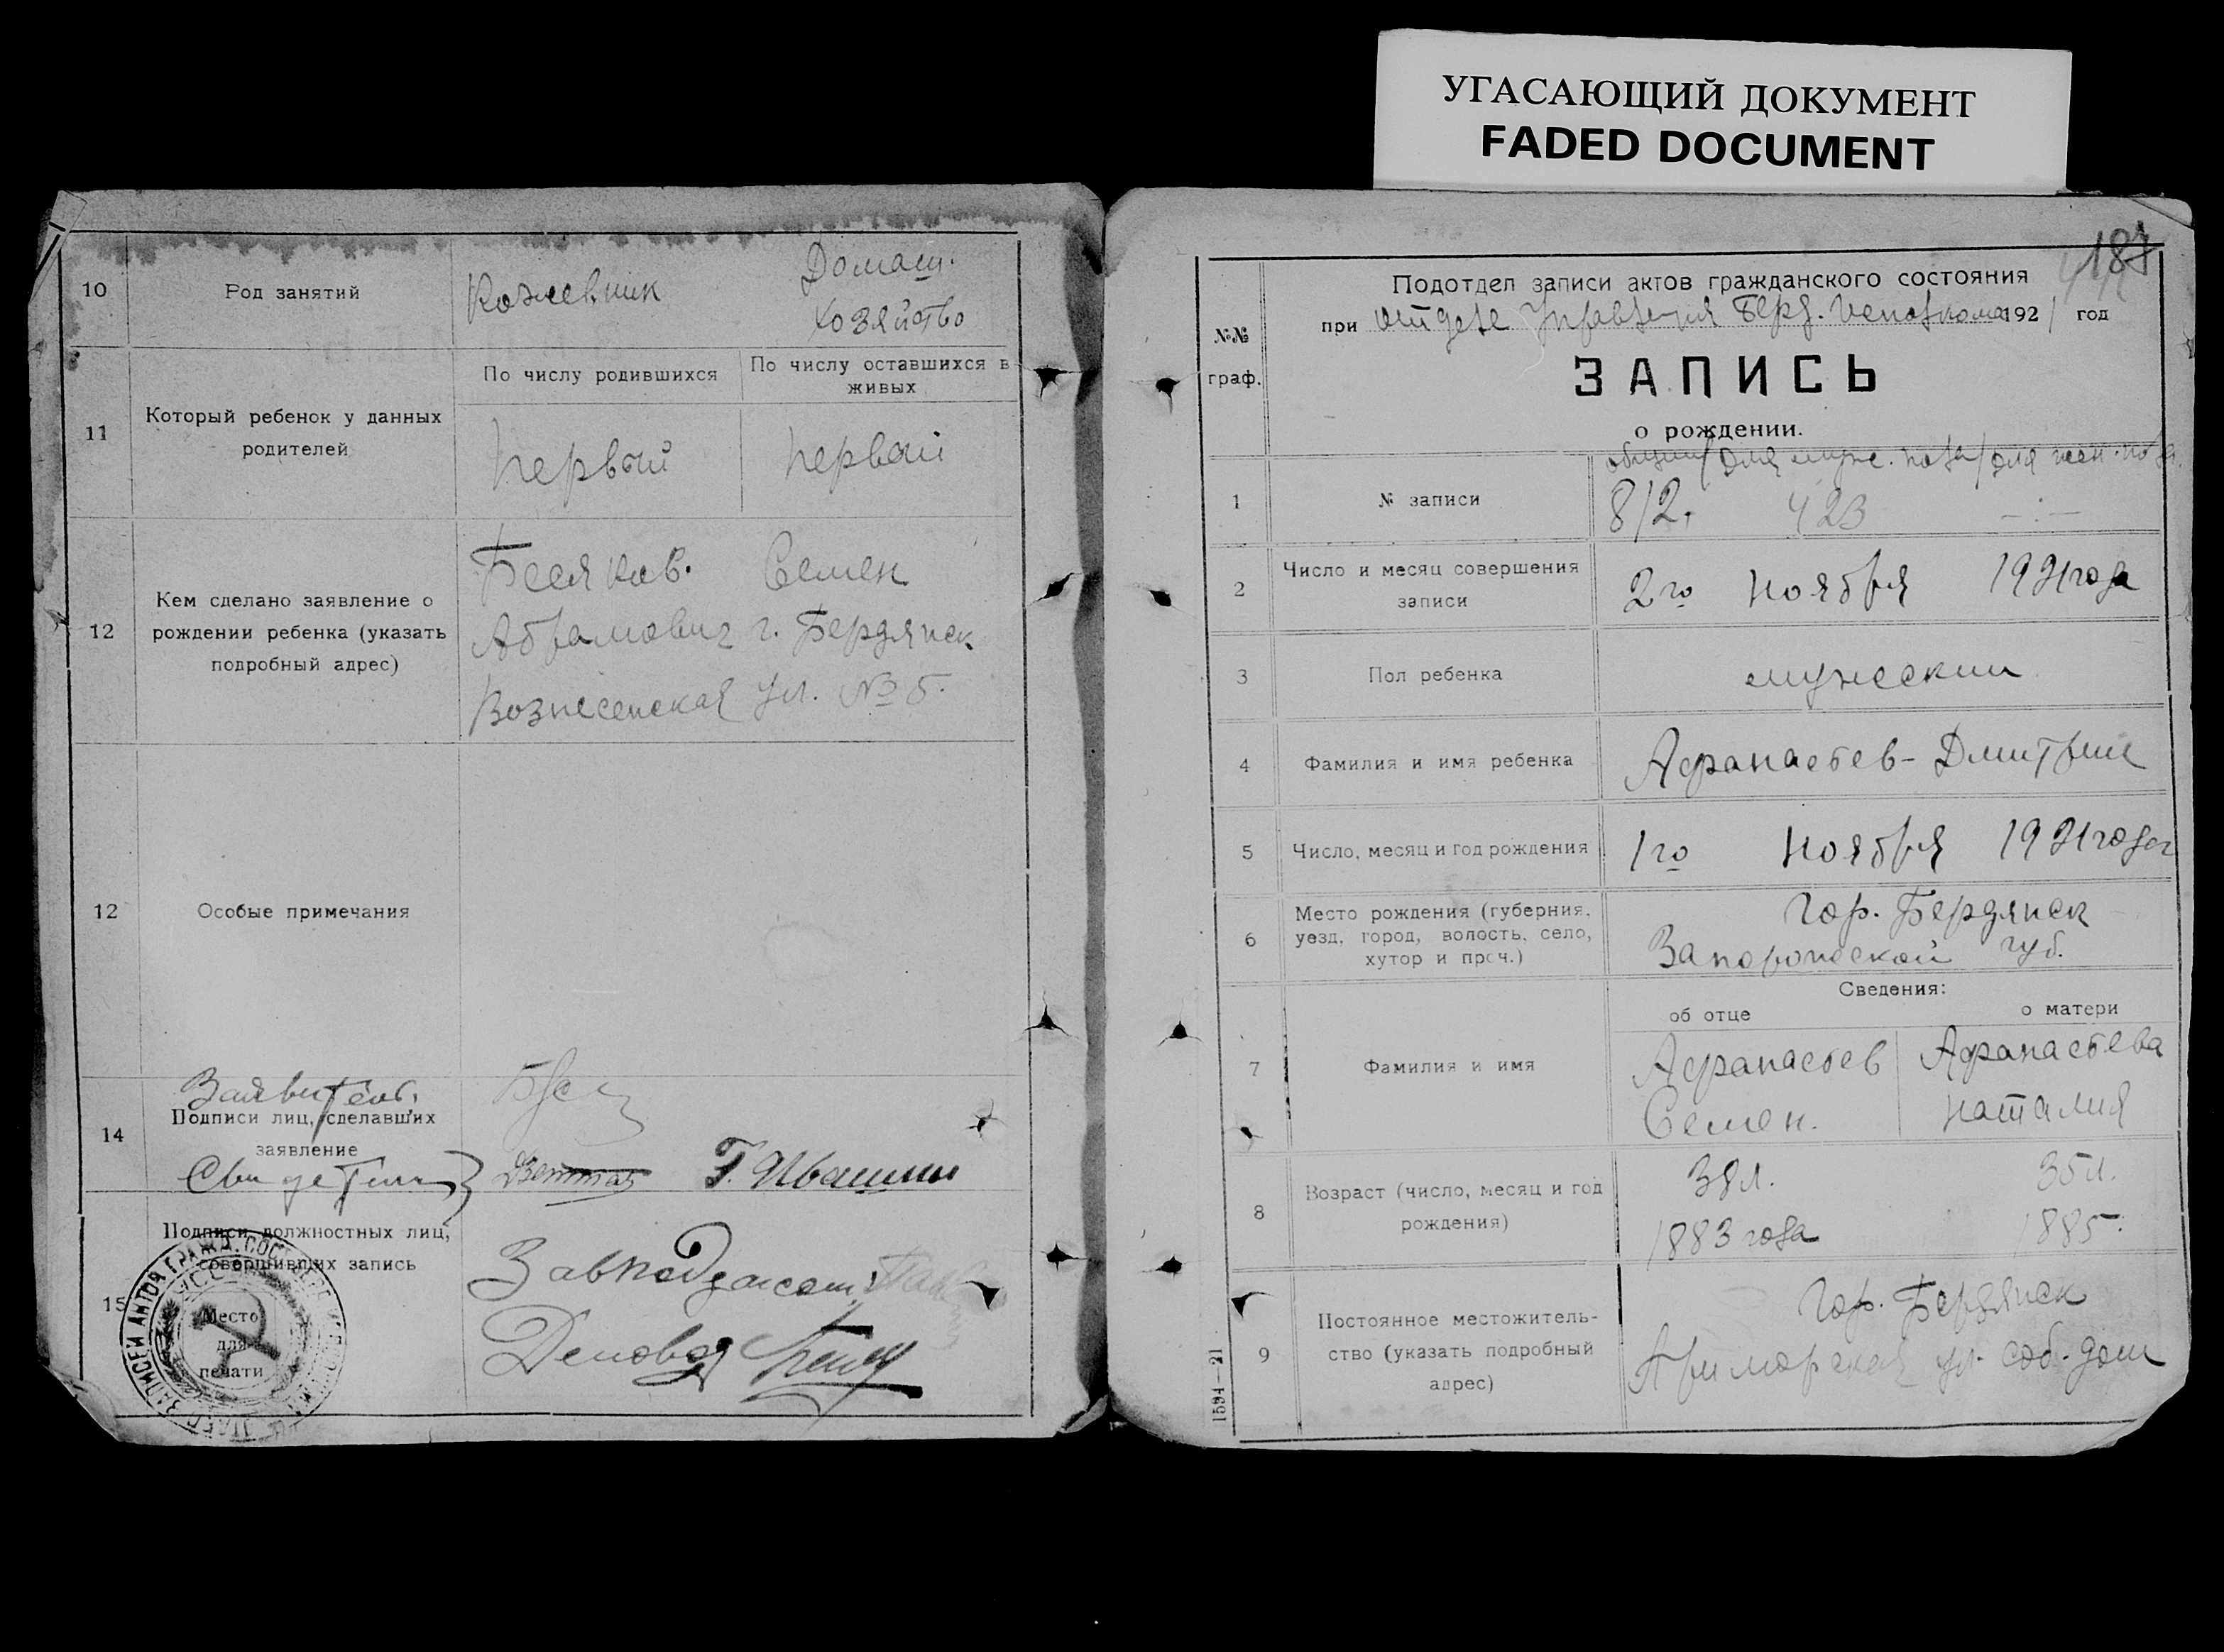 УГАСАЮЩИЙ ДОКУМЕНТ
FADED DOCUMENT
10
Род занятий
Кожевник
Домаш.
хозяйство
11
Который ребенок у данных
родителей
По числу родившихся
По числу оставшихся в
живых
первый
первый
12
Кем сделано заявление о
рождении ребенка (указать
подробный адрес)
Семен
Абрамович г. Бердянск
Вознесенская ул. № 5.
12
Особые примечания
14
Заявитель
Подписи лиц, сделавших
заявление
Свидетели
Г. Ивашин
15
Подписи должностных лиц,
совершивших запись
Место
для
печати
Завподзагсом
Деловод
187
№№
граф.
Подотдел записи актов гражданского состояния
при отделе Управления Берд. исполкома 1921 год
ЗАПИСЬ
о рождении.
общий/для муж. пола/для жен. пола
1
№ записи
812. 423 —:—
2
Число и месяц совершения
записи
2го Ноября 1921 года
3
Пол ребенка
мужеский
4
Фамилия и имя ребенка
Афанасьев - Дмитрий
5
Число, месяц и год рождения
1го Ноября 1921 года
6
Место рождения (губерния,
уезд, город, волость, село,
хутор и проч.)
Гор. Бердянск
Запорожской губ.
7
Фамилия и имя
Сведения:
об отце
о матери
Афанасьев
Семен.
Афанасьева
Наталия
8
Возраст (число, месяц и год
рождения)
38 л.
1883 года
35 л.
1885
9
Постоянное местожитель-
ство (указать подробный
адрес)
Гор. Бердянск
Приморская ул. соб. дом
1594—21